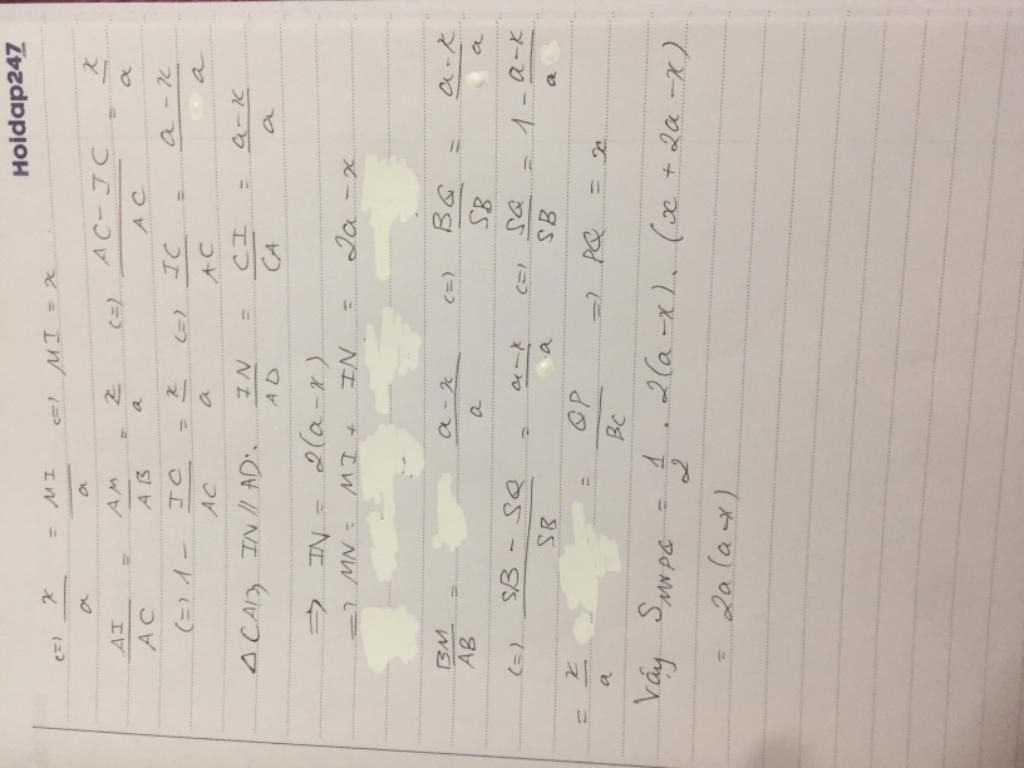 Hoidap247
(=) x/a = MI/a (=) MI = x
AI/AC = AM/AB = x/a (=) (AC - IC)/AC = x/a
(=) 1 - IC/AC = x/a (=) IC/AC = (a - x)/a
Δ CAD, IN // AD. IN/AD = CI/CA = (a-x)/a
=> IN = 2(a-x)
=> MN = MI + IN = 2a - x
BM/AB = (a-x)/a (=) BQ/SB = (a-x)/a
(=) (SB - SQ)/SB = (a-x)/a (=) SQ/SB = 1 - (a-x)/a
= x/a = QP/BC => PQ = x
Vậy S_MNPQ = 1/2 . 2(a-x) . (x + 2a - x)
= 2a(a-x)